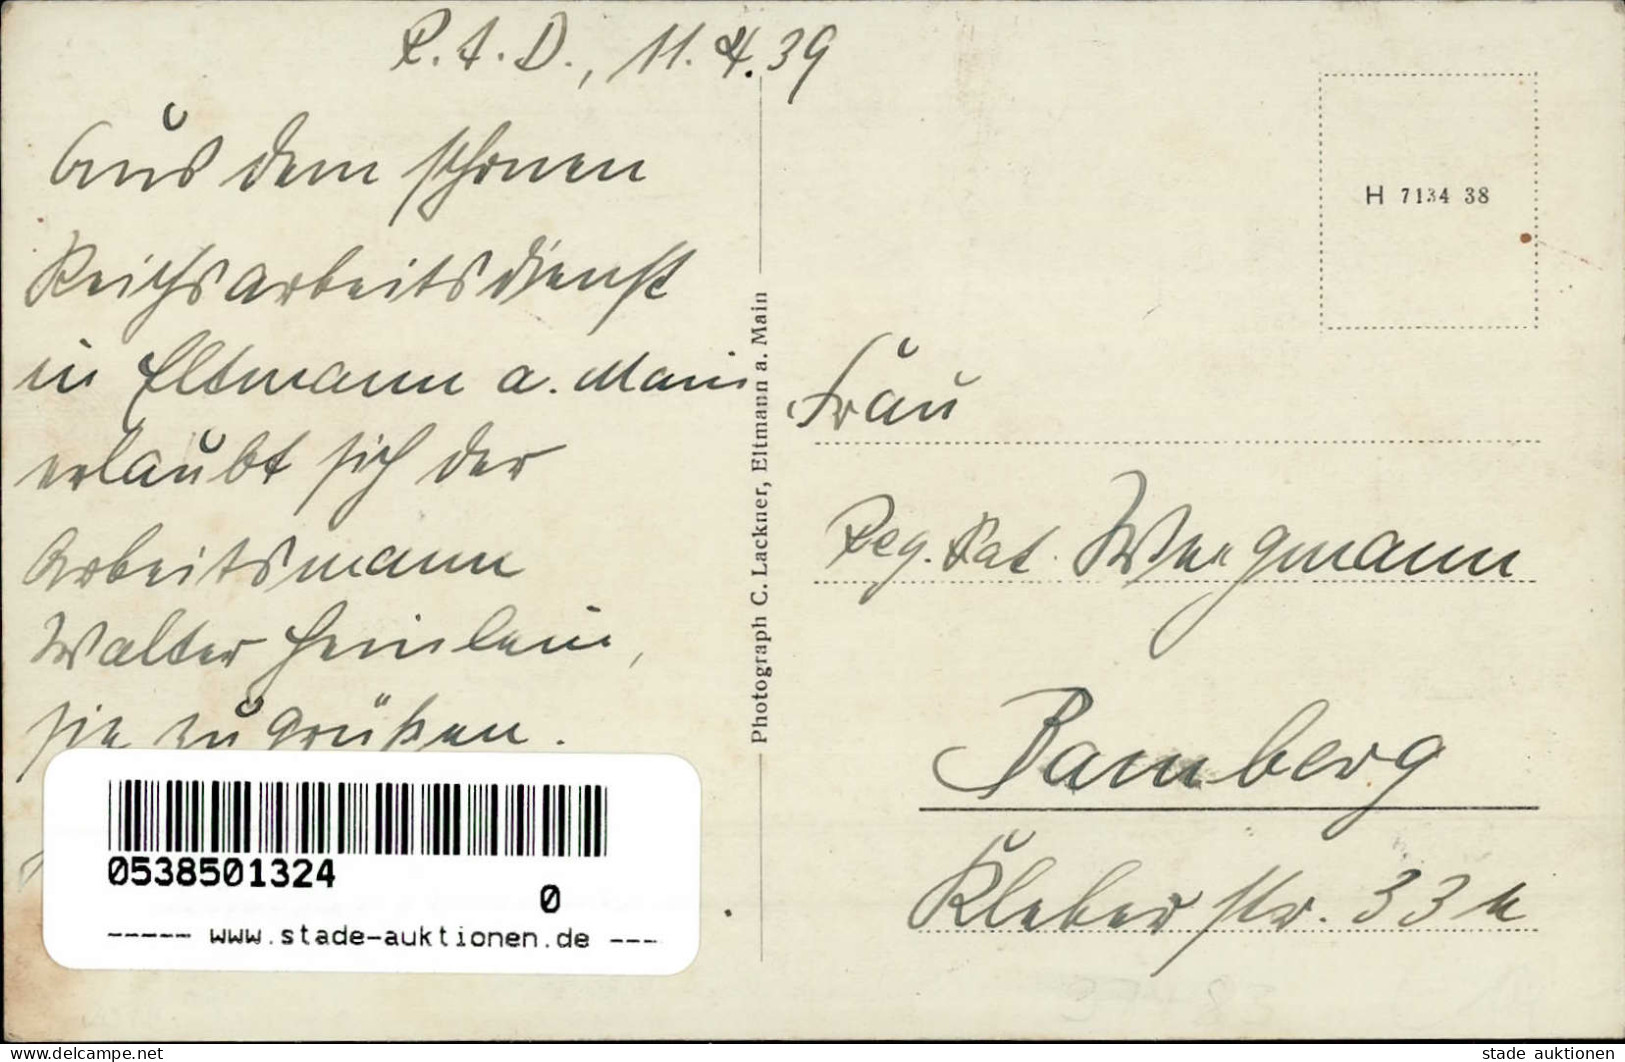 R.A.D., 11.4.39
Aus dem schönen
Reichsarbeitsdienst
in Eltmann a. Main
erlaubt sich der
Arbeitsmann
Walter Heinlein,
sie zu grüßen.
Photograph C. Lackner, Eltmann a. Main
H 7134 38
Frau
Reg. Rat. Wiegmann
Bamberg
Kleberstr. 33
0538501324
0
----- www.stade-auktionen.de ---
www.delcampe.net
stade auktionen